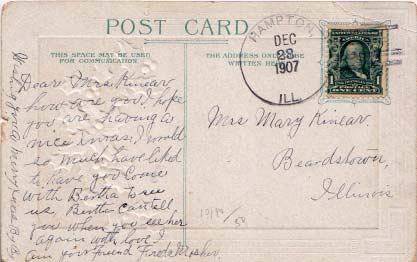 POST CARD
THIS SPACE MAY BE USED
FOR COMMUNICATION
THE ADDRESS ONLY
WRITTEN HERE
HAMPTON,
DEC
28
1907
ILL
Dear Mrs. Kinear
how are you I hope
you are having a
nice xmas. I would
so much have liked
to have you come
with Bertha to see
us, Bertha can tell
you when you see her
again with love I
am your friend Mosher
Mrs Mary Kinear
Beardstown,
Illinois